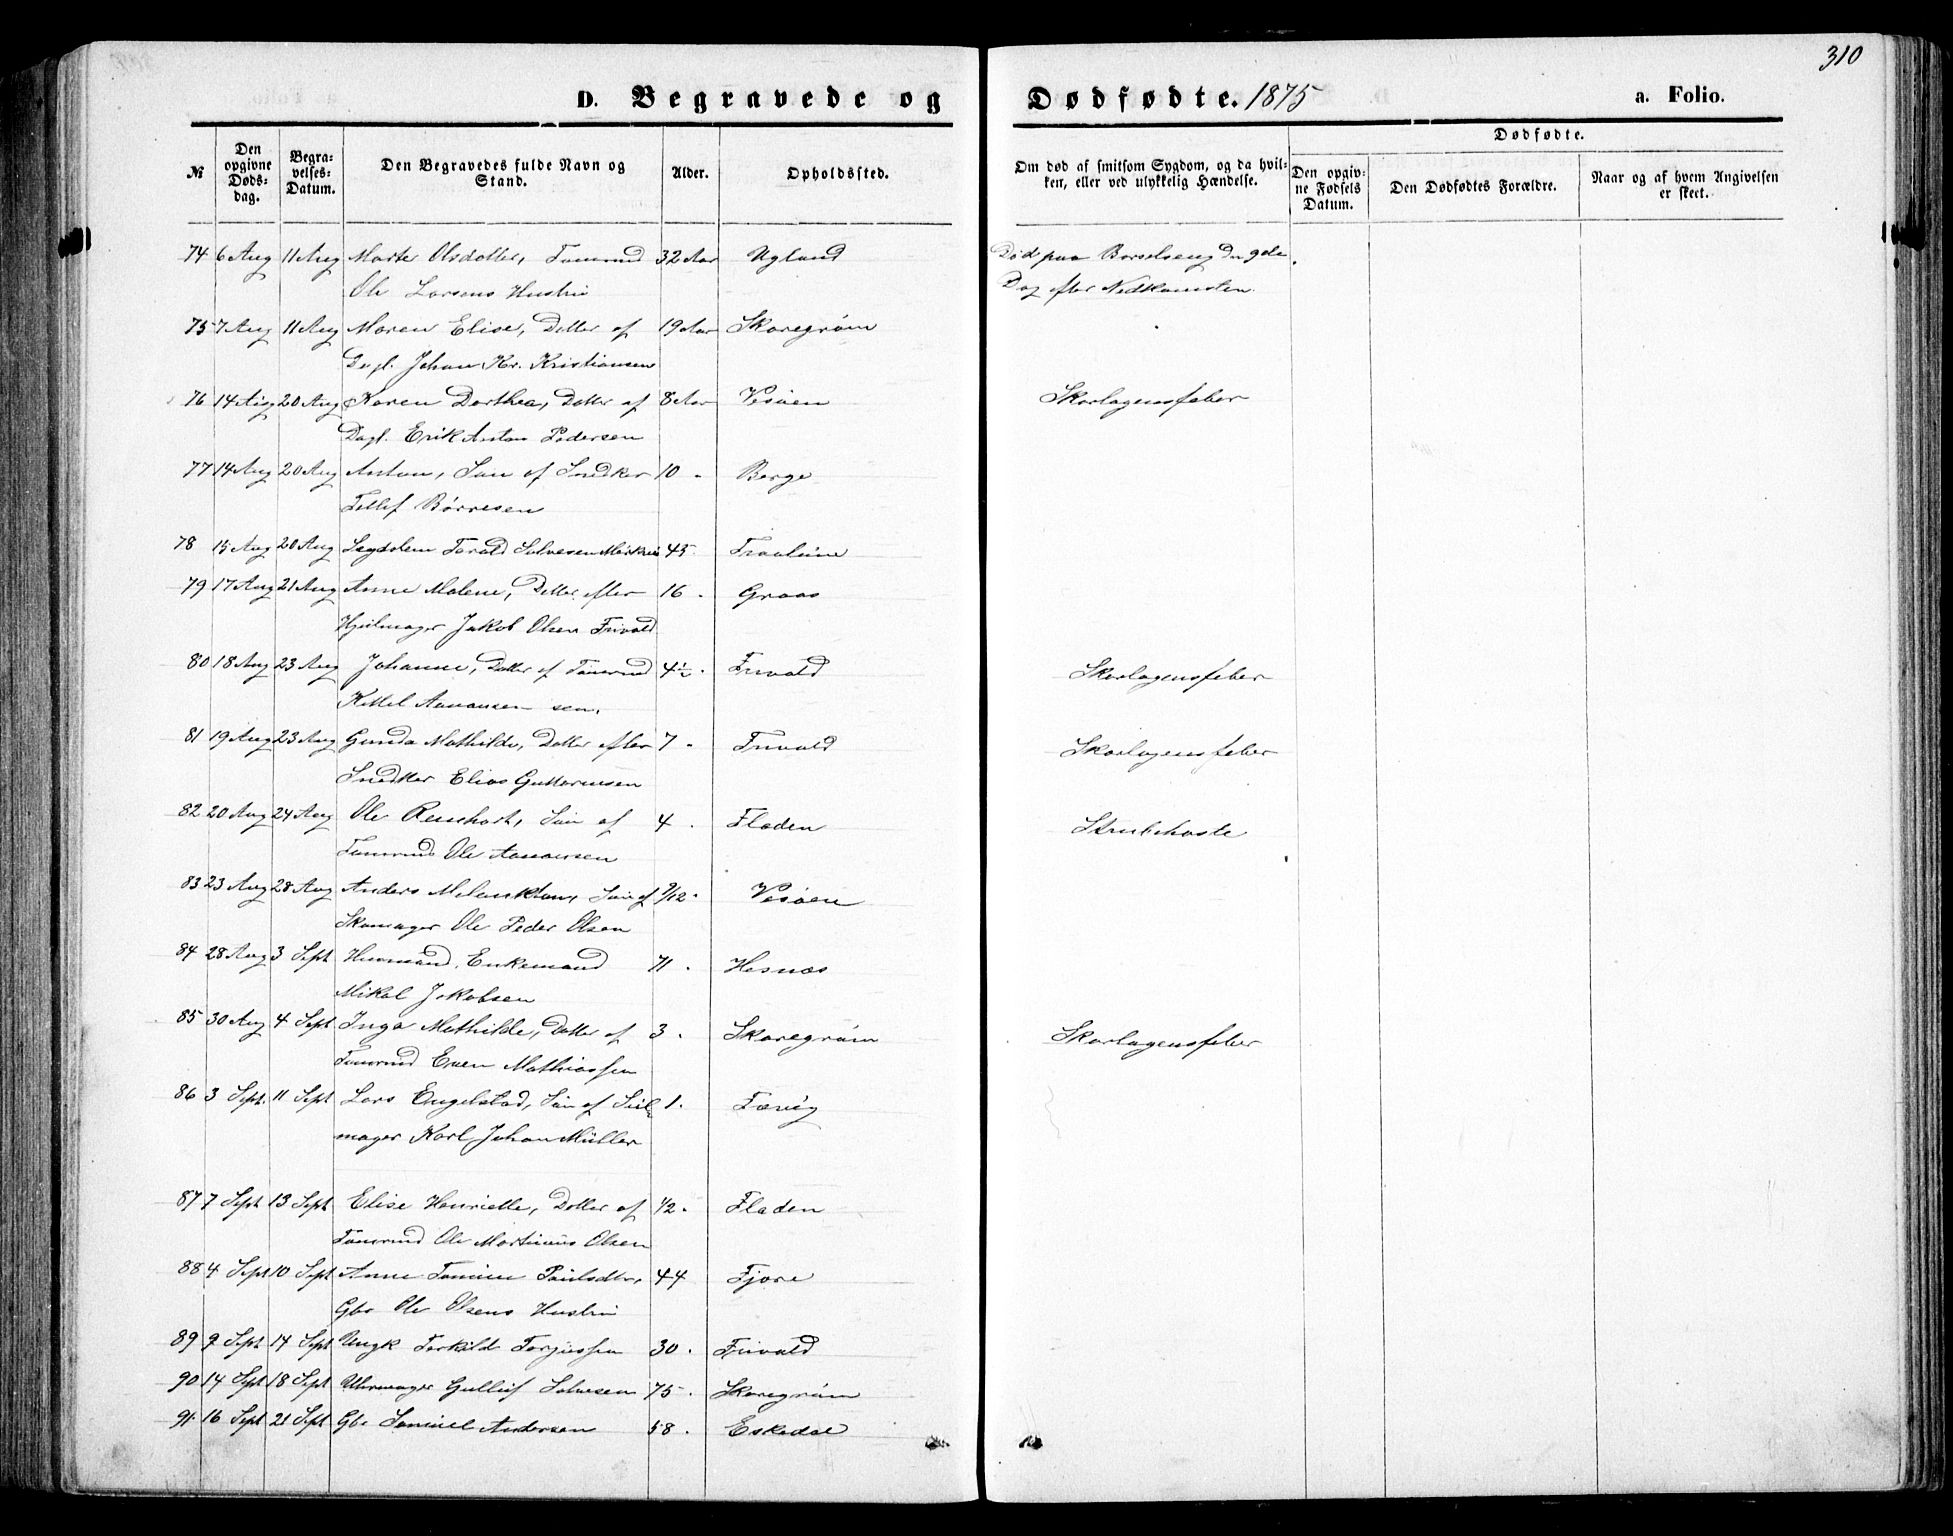 310
D. Begravede og Dødfødte. 1875 a. Folio.
№ Den opgivne Døds-dag. Begra-velses-Datum. Den Begravedes fulde Navn og Stand. Alder. Opholdssted. Om død af smitsom Sygdom, og da hvil-ken, eller ved ulykkelig Hændelse. Dødfødte. Den opgiv-ne Fødsels Datum. Den Dødfødtes Forældre. Naar og af hvem Angivelsen er skeet.
74 6 Aug 11 Aug Marte Olsdatter, Tømmd 32 Aar Ugland Død paa Barselseng den 9de
Ole Larsens Hustru Dag efter Nedkomsten.
75 7 Aug 11 Aug Maren Elise, Datter af 19 Aar Skaregrøm
Dagl. Johan Kr. Kristiansen
76 14 Aug 20 Aug Karen Dorthea, Datter af 8 Aar Vesøen Skarlagensfeber
Dagl. Erik Anton Pedersen
77 14 Aug 20 Aug Anton, Søn af Snedker 10 - Berge
Tellef Børresen
78 15 Aug 20 Aug Torvald Salvesen 45
79 17 Aug 21 Aug Anne Malene, Datter efter 16 - Groos
Hjulmager Jakob Olsen Frivold
80 18 Aug 23 Aug Johanne, Datter af Tømrmd 4½ - Frivold Skarlagensfeber
Kittel Aanonsen sen.
81 19 Aug 23 Aug Gunda Mathilde, Datter efter 7 - Frivold Skarlagensfeber
Snedker Elias Guttormsen
82 20 Aug 24 Aug Ole Reinhart, Søn af 4 - Fladen Strubehoste
Tømrmd Ole Aanonsen
83 23 Aug 28 Aug Anders Melankton, Søn af 9/12 - Vesøen
Skomager Ole Peder Olsen
84 28 Aug 3 Sept Huusmand, Enkemand 71 - Hesnæs
Mikal Jakobsen
85 30 Aug 4 Sept Inga Mathilde, Datter af 3 - Skaregrøm Skarlagensfeber
Tømrmd Even Mathiassen
86 3 Sept. 11 Sept Lars Engelstad, Søn af Seil- 1 - Færvig
mager Karl Johan Müller
87 7 Sept 13 Sept Elise Henriette, Datter af 1/2 - Fladen
Tømrmd Ole Martinius Olsen
88 4 Sept 10 Sept Anne Tomine Paulsdtr, 44 Fjære
Gbr Ole Olsens Hustru
89 9 Sept 14 Sept Ungk Torkild Torjussen 30 - Frivold
90 14 Sept 18 Sept Uhrmager Gulluf Salvesen 75 - Skaregrøm
91 16 Sept 21 Sept Gbr Samuel Andersen 58 - Eskedal